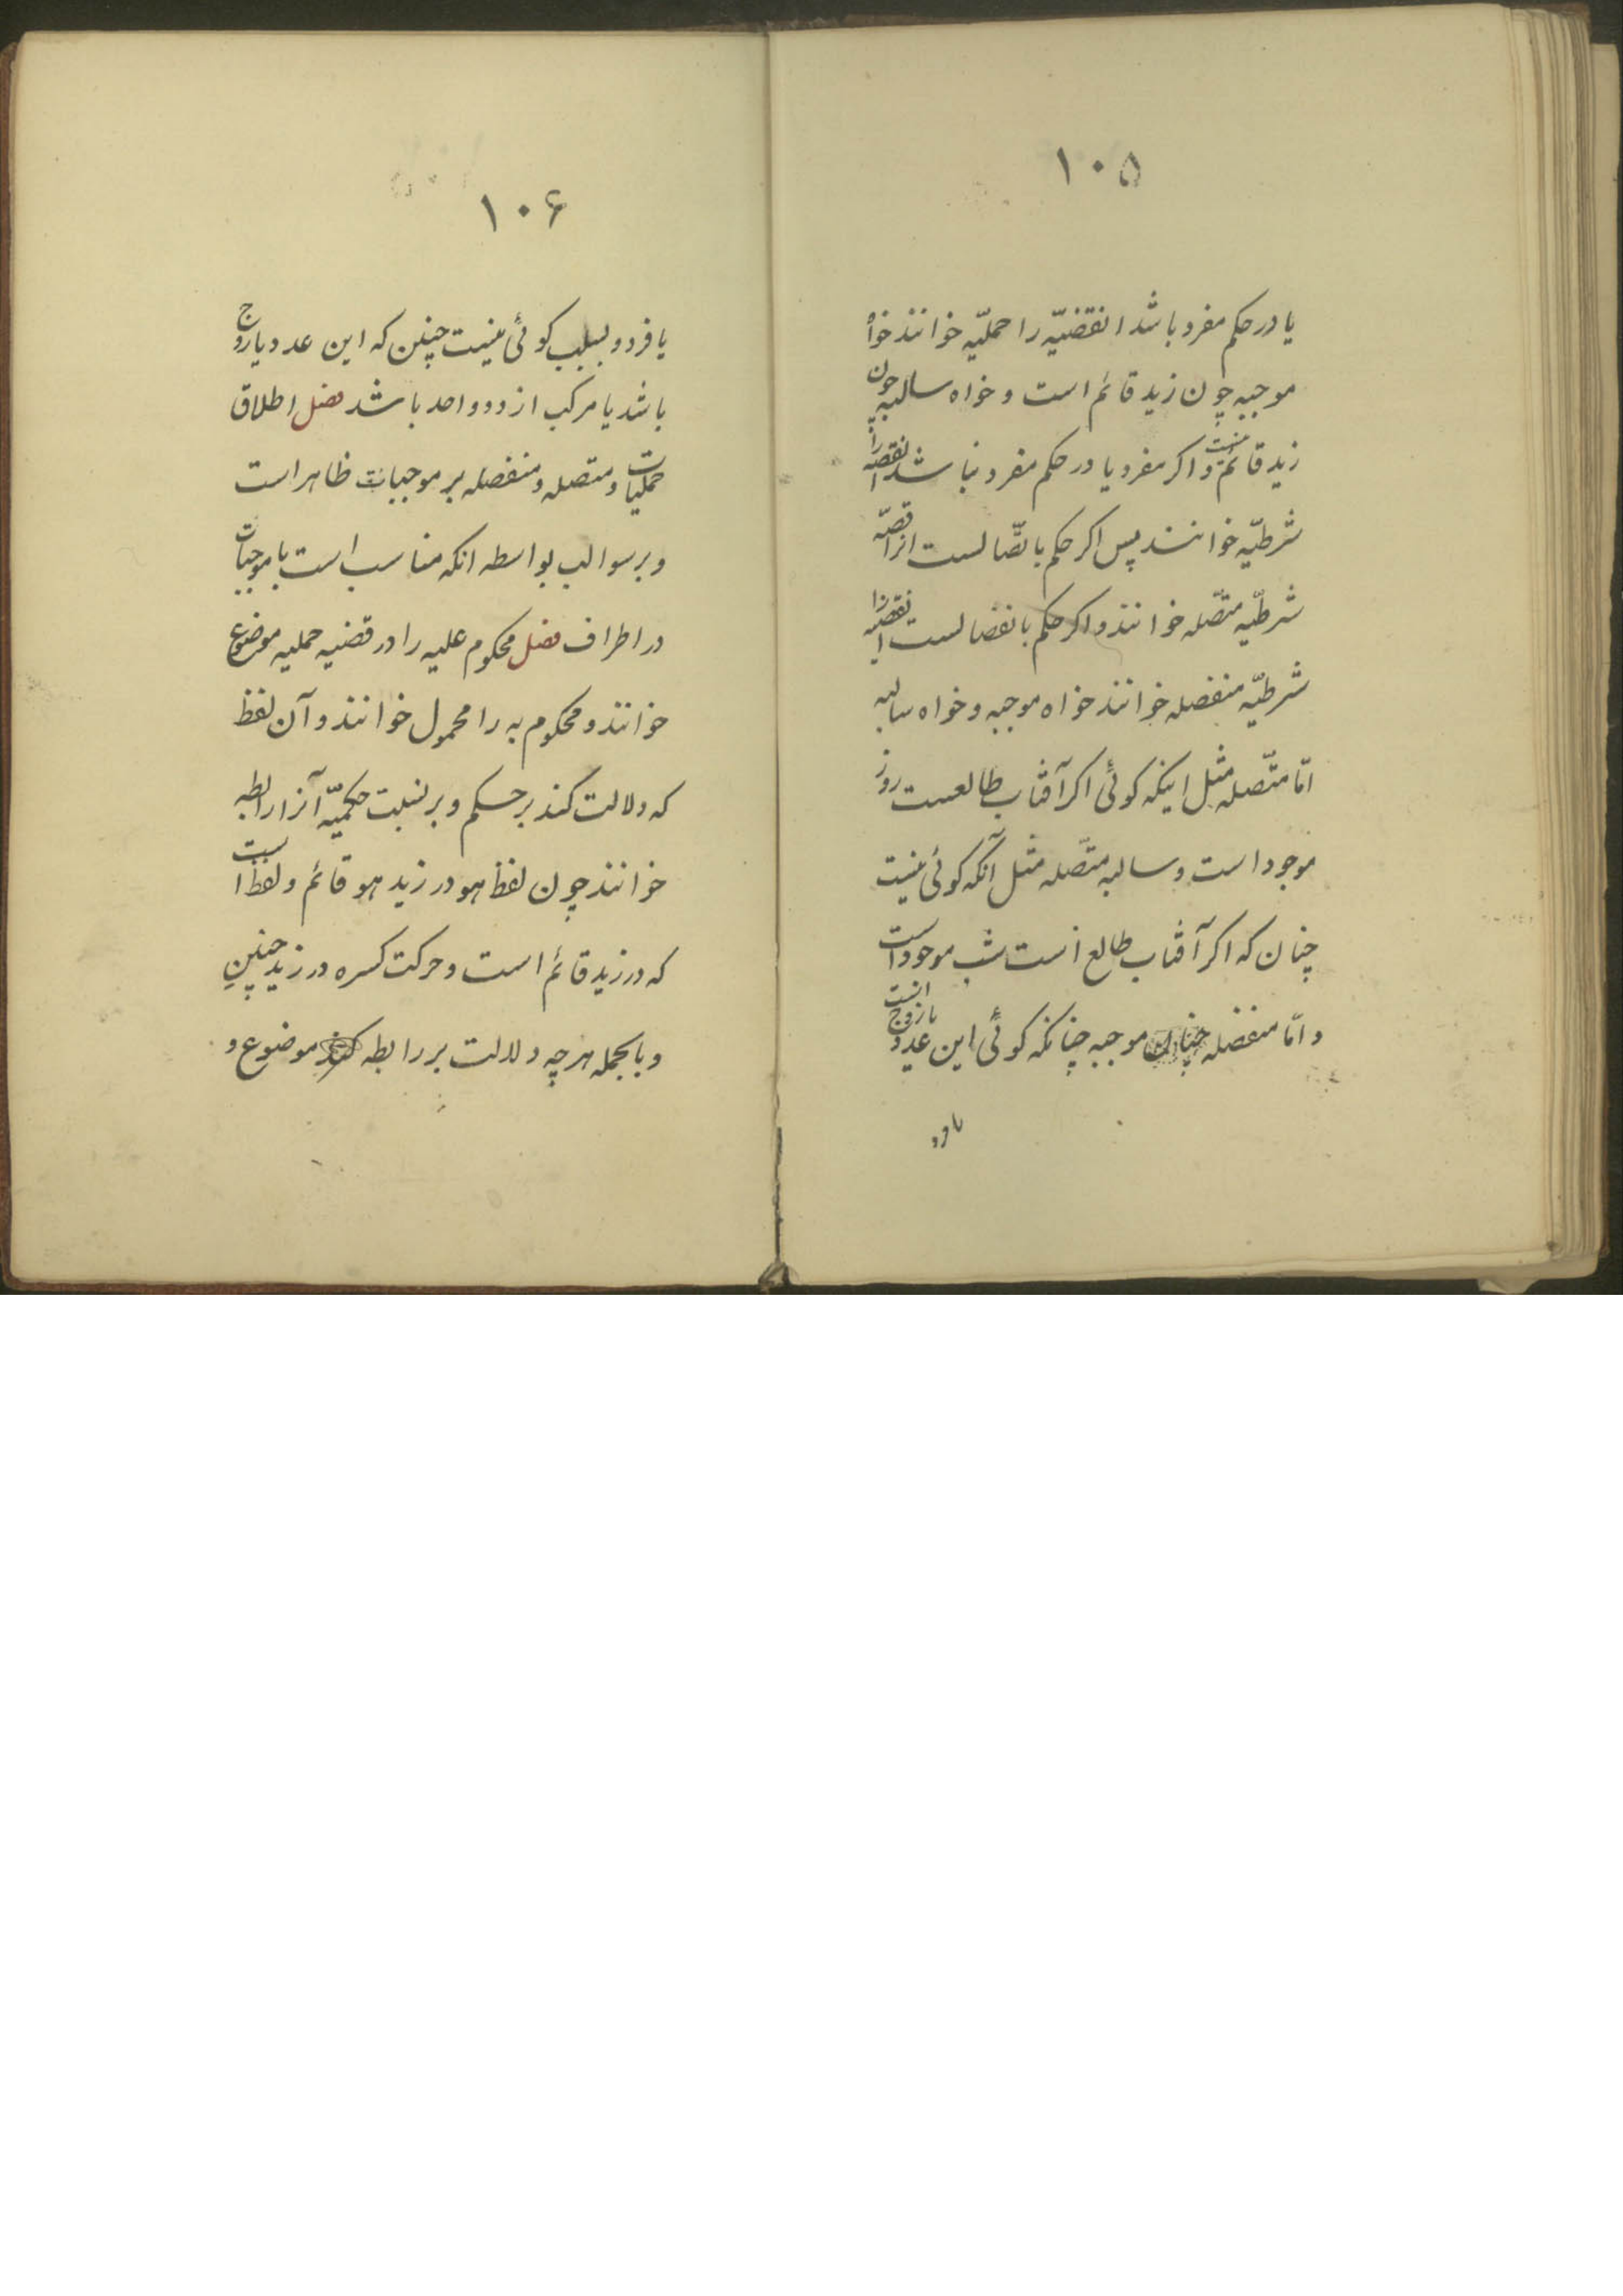 ۱۰۵
یا در حکم مفرد باشد انقضیّه را حملیّه خوانند خواه
موجبه چون زید قائم است و خواه سالبه چون
زید قائم نیست و اکر مفرد یا در حکم مفرد نباشد انقضیه را
شرطیّه خوانند پس اکر حکم باتّصالست انرا قضیّه
شرطیّه متّصله خوانند و اکر حکم بانفصالست انقضیه را
شرطیّه منفصله خوانند خواه موجبه و خواه سالبه
امّا متّصله مثل اینکه کوئی اکر آفتاب طالعست روز
موجود است و سالبه متّصله مثل آنکه کوئی نیست
چنان که اکر آفتاب طالع است شب موجود است
و امّا منفصله موجبه چنانکه کوئی این عدد یا زوج است
یا فرد
۱۰۶
یا فرد و بسلب کوئی نیست چنین که این عدد یا زوج
باشد یا مرکب از دو واحد باشد فصل اطلاق
حملیات و متصله و منفصله بر موجبات ظاهر است
و بر سوالب بواسطه انکه مناسب است با موجبات
در اطراف فصل محکوم علیه را در قضیه حملیه موضوع
خوانند و محکوم به را محمول خوانند و آن لفظ
که دلالت کند بر حکم و بر نسبت حکمیّه آنرا رابطه
خوانند چون لفظ هو در زید هو قائم و لفظ است
که در زید قائم است و حرکت کسره در زید چنینِ
و بالجمله هر چه دلالت بر رابطه کند موضوع و